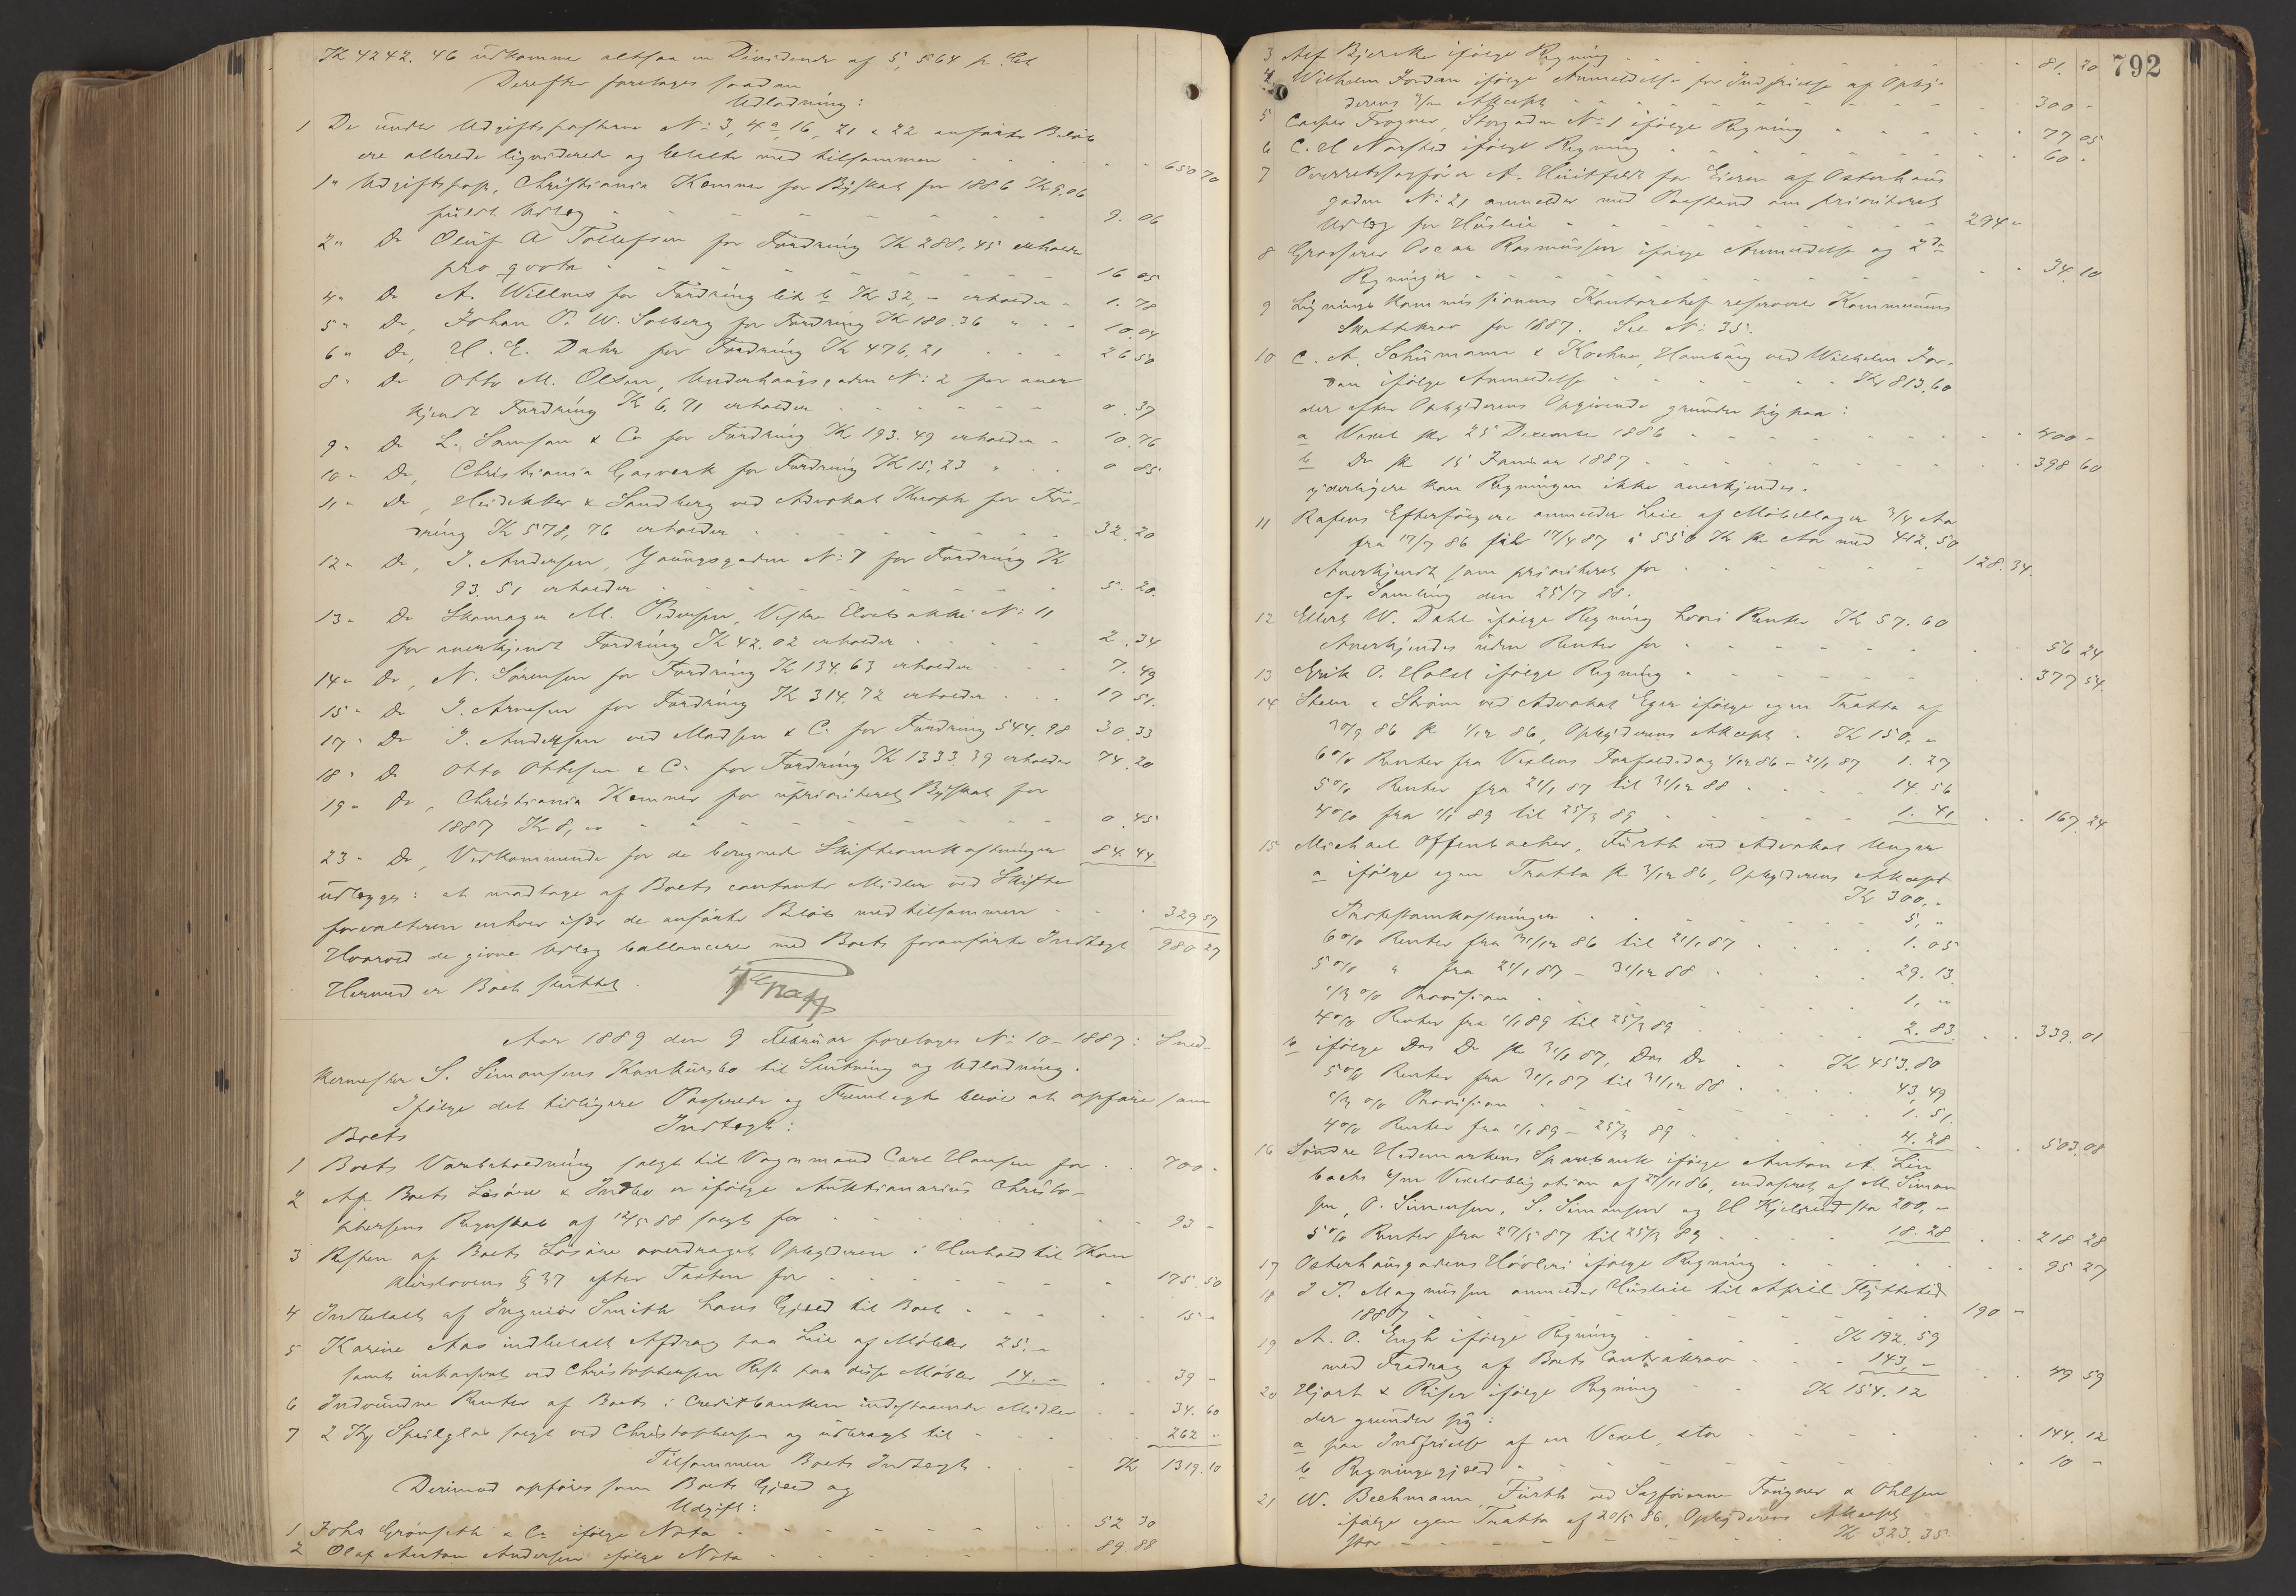 Kr 4242.46 udkommer altsaa en Dividende af 5,564 pr. Ct
Derefter foretages saadan
Udlodning:
1 De under Udgiftsposterne No: 3, 4a, 16, 21 & 22 anførte Beløb
ere allerede ligviderede og betalte med tilsammen 650 70
1" Udgiftspost, Christiania Kemner for Byskat for 1886 Kr 9.06
fuldt Udlæg 9. 06
2" Do Oluf A Tollefsen for Fordring Kr 288,45 erholder
pro qvota 16 05
4" Do A. Willms for Fordring lit b Kr 32,- erholder 1. 78
5" Do, Johan P. W. Solberg for Fordring Kr 180.36 " 10.04
6" Do, H. E. Dahr for Fordring Kr 476,21 26 50
8" Do Otto M. Olsen, Underhaugsgaden No: 2 for aner
kjendt Fordring Kr 6,71 erholder 0.37
9" Do L. Samson & Co for Fordring Kr 193.49 erholder 10.76
10" Do, Christiania Gasverk for Fordring Kr 15,23 " 0 85
11" Do, & Sandberg ved Advokat for For-
dring Kr 578,76 erholder 32.20
12" Do, J. Andersen, Youngsgaden No: 7 for Fordring Kr
93.51 erholder 5. 20.
13" Do Skomager M. Pedersen, Vestre Elvebakke No: 11
for anerkjendt Fordring Kr 42.02 erholder 2.34
14" Do, N. Sørensen for Fordring Kr 134.63 erholder 7.49
15" Do J. Arnesen for Fordring Kr 314.72 erholder 17 51.
17" Do J. Andersen ved Madsen & Co for Fordring 544.98 30.33
18" Do Otto Ottesen & Co for Fordring Kr 1333.39 erholder 74.20
19" Do, Christiania Kemner for uprioriteret Byskat for
1887 Kr 8,- 0.45
23" Do, Vedkommende for de beregnede Skifteomkostninger 84.44.
udlægges: at modtage af Boets contante Midler ved Skifte
forvalteren enhver især de anførte Beløb med tilsammen 329 57
Hvorved de givne Udlæg ballancerer med Boets foranførte Indtægt 980 27
Hermed er Boet sluttet.
Aar 1889 den 9 Februar foretoges No: 10-1887: Sned-
kermester S. Simonsens Konkursbo til Slutning og Udlodning.
Ifølge det tidligere Passerede og Fremlagte bliver at opføre som
Boets Indtægt:
1 Boets Varebeholdning solgt til Vognmand Carl Hansen for 700 -
2 Af Boets Løsøre & Indbo er ifølge Auktionarius Christo-
phersens Regnskab af 12/5 88 solgt for 93 -
3 Resten af Boets Løsøre overdraget Opbyderen i Henhold til Kon
kurslovens § 37 efter Taxten for 175.50
4 Indbetalt af Ingeniør Smith hans Gjæld til Boet 15 -
5 Karine Aas indbetalt Afdrag paa Leie af Møbler 25.-
samt inkasseret ved Christophersen Rest paa disse Møbler 14.- 39 -
6 Indvundne Renter af Boets i Creditbanken indestaaende Midler 34.60
7 2 Kg Speilglas solgt ved Christophersen og udbragt til 262 -
Tilsammen Boets Indtægt Kr 1319.10
Derimod opføres som Boets Gjæld og
Udgift:
1 Johs Grønseth & Co ifølge Nota 52 30
2 Olaf Anton Andersen ifølge Nota 89.88
792
3 Alf Bjercke ifølge Regning 81.20
4 Wilhelm Jordan ifølge Anmeldelse for Indfrielse af Opby-
derens Akcept 300 -
5 Casper Frogner, Storgaden No: 1 ifølge Regning 77 05
6 C. H Norsted ifølge Regning 60 -
7 Overretssagfører A. Huitfeldt for Eieren af Osterhaus
gaden No: 21 anmelder med Paastand om prioriteret
Udlæg for Husleie 294 -
8 Grosserer Oscar Rasmussen ifølge Anmeldelse og 2de
Regninger 34.10
9 Ligningskommissionens Kontorchef reserverer Kommunens
Skattekrav for 1887. See No: 35.
10 C. A. Schumann & Kochne, Hamburg ved Wilhelm Jor-
dan ifølge Anmeldelse Kr 813,60
der efter Opbyderens Opgivende grunder sig paa:
a Vexel pr 25 December 1886 400 -
b Do pr 15 Januar 1887 398 60
yderligere kan Regningen ikke anerkjendes.
11 Rafens Efterfølgere anmelder Leie af Møbellager 3/4 Aar
fra 17/7 86 til 17/4 87 à 550 Kr pr Aar med 412,50
Anerkjendt som prioriteret for 128.34.
cfr Samling den 25/7 88.
12 Ellert W. Dahl ifølge Regning hvori Renter Kr 57.60
Anerkjendes uden Renter for 56 24
13 Erik O. Holst ifølge Regning 377 54.
14 Steen & Strøm ved Advokat Eger ifølge egen Tratta af
30/9 86 pr 1/12 86, Opbyderens Akcept Kr 150,-
6% Renter fra Vexlens Forfaldsdag 1/12 86 - 21/1 87 1. 27
5% Renter fra 21/1 87 til 31/12 88 14.56
4% fra 1/1 89 til 25/3 89 1.41 167.24
15 Michael Offenbacher, Fürth ved Advokat Unger
a ifølge egen Tratta pr 31/12 86, Opbyderens Akcept
Kr 300,-
Protestomkostninger 5,-
6% Renter fra 31/12 86 til 21/1 87 1.05
5% " fra 21/1 87 - 31/12 88 29.13.
1/3 % Provision 1,-
4% Renter fra 1/1 89 til 25/3 89 2.83. 339.01
b ifølge Do Do pr 31/1 87, Do Do Kr 453.80
5% Renter fra 31/1 87 til 31/12 88 43,49
1/3 % Provision 1.51.
4% Renter fra 1/1 89 - 25/3 89 4.28 503,08
16 Søndre Hedemarkens Sparebank ifølge Anton A. Lin
bachs Vexelobligation af 27/11 86, endosseret af M. Simon
sen, O. Simensen, S. Simonsen og H Kjelsrud stor 200,-
5% Renter fra 27/5 87 til 25/3 89 18.28 218 28
17 Osterhausgadens Høvleri ifølge Regning 95 27
18 J P. Magnussen anmelder Husleie til April Flyttetid
1887 190 -
19 A. O. Engh ifølge Regning Kr 192.59
med Fradrag af Boets Contrakrav 143,- 49 59
20 Hjort & Riser ifølge Regning Kr 154.12
der grunder sig:
a paa Indfrielse af en Vexel, stor 144.12
b Regningsgjæld 10 -
21 W. Bechmann, Fürth ved Sagførerne Frigner & Ohlsen
ifølge egen Tratta af 20/5 86, Opbyderens Akcept
stor Kr 323.35